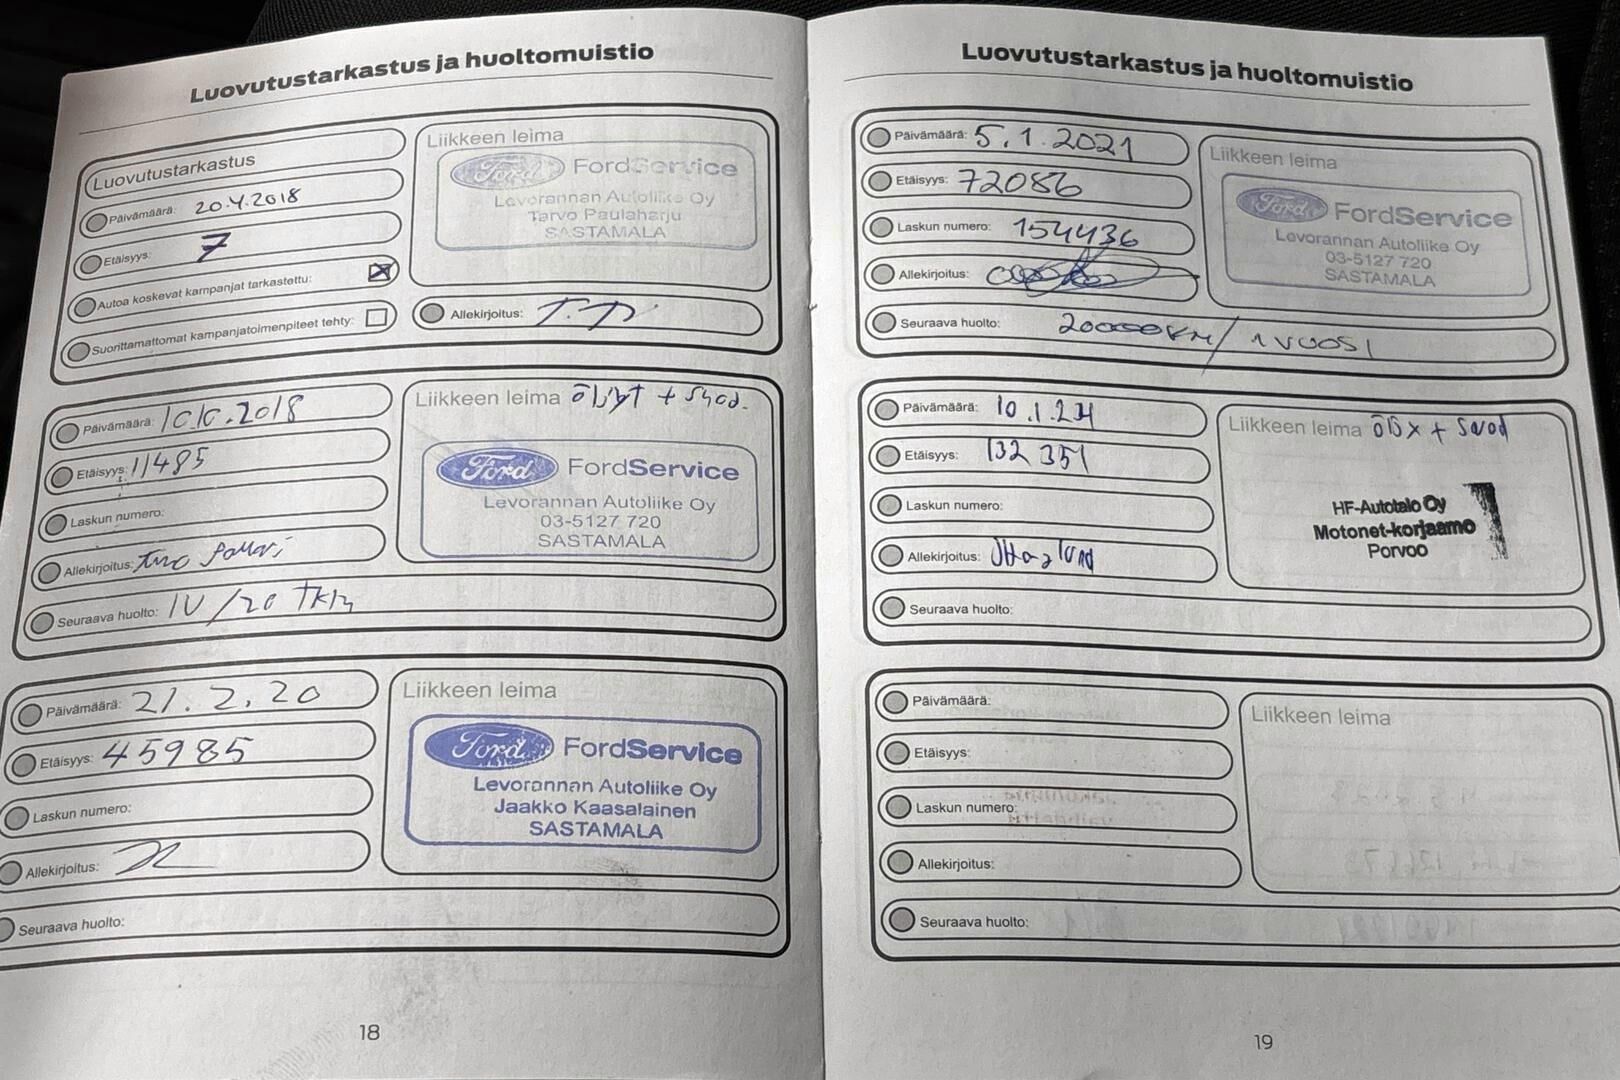 Luovutustarkastus ja huoltomuistio
Luovutustarkastus
Päivämäärä: 20.4.2018
Etäisyys: 7
Autoa koskevat kampanjat tarkastettu:
Suorittamattomat kampanjatoimenpiteet tehty:
Liikkeen leima
Ford FordService
Levorannan Autoliike Oy
Tarvo Paulaharju
SASTAMALA
Allekirjoitus:
Päivämäärä: 10.10.2018
Etäisyys: 11485
Laskun numero:
Allekirjoitus:
Seuraava huolto: 1V/20 tkm
Liikkeen leima
Ford FordService
Levorannan Autoliike Oy
03-5127 720
SASTAMALA
Päivämäärä: 21.2.20
Etäisyys: 45985
Laskun numero:
Allekirjoitus:
Seuraava huolto:
Liikkeen leima
Ford FordService
Levorannan Autoliike Oy
Jaakko Kaasalainen
SASTAMALA
18
Luovutustarkastus ja huoltomuistio
Päivämäärä: 5.1.2021
Etäisyys: 72086
Laskun numero: 154436
Allekirjoitus:
Seuraava huolto: 20000km/1 vuosi
Liikkeen leima
Ford FordService
Levorannan Autoliike Oy
03-5127 720
SASTAMALA
Päivämäärä: 10.1.24
Etäisyys: 132 351
Laskun numero:
Allekirjoitus:
Seuraava huolto:
Liikkeen leima
HF-Autotalo Oy
Motonet-korjaamo
Porvoo
Päivämäärä:
Etäisyys:
Laskun numero:
Allekirjoitus:
Seuraava huolto:
Liikkeen leima
19